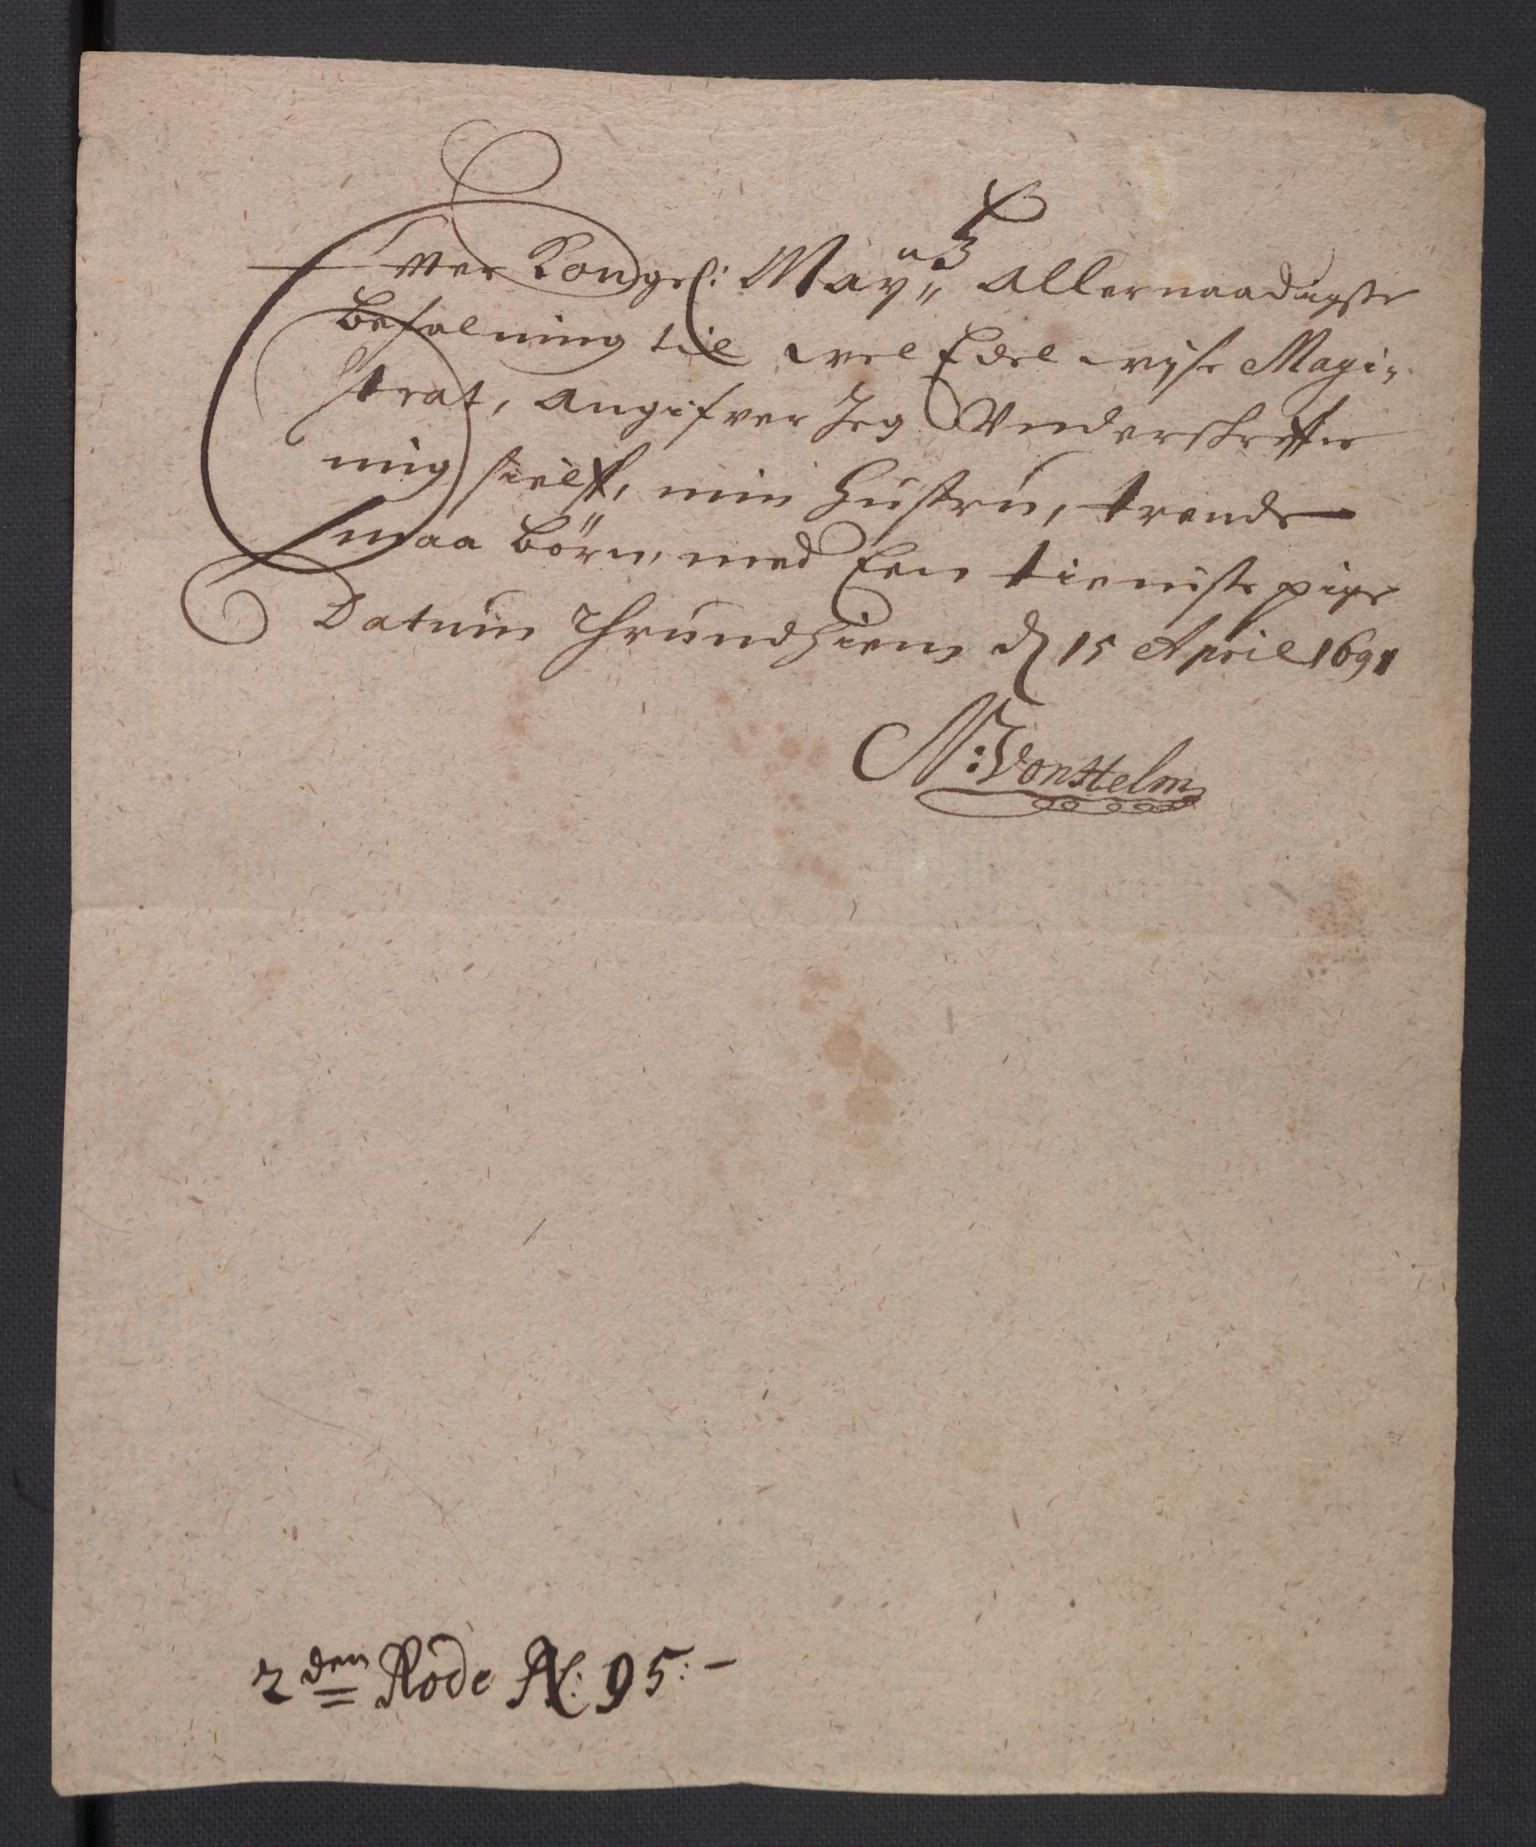 Efter Kongel: May<sup>tz</sup> Allernaadigste
befalning til wel Edel wyse Magi-
strat, angifver Jeg Underskrefne
mig sielf, min Hustru, trende
smaa børn, med Een tieniste pige
Datum Thrundhiem d 15 April 1691
N: Von Helm
2den Rode N: 95:-